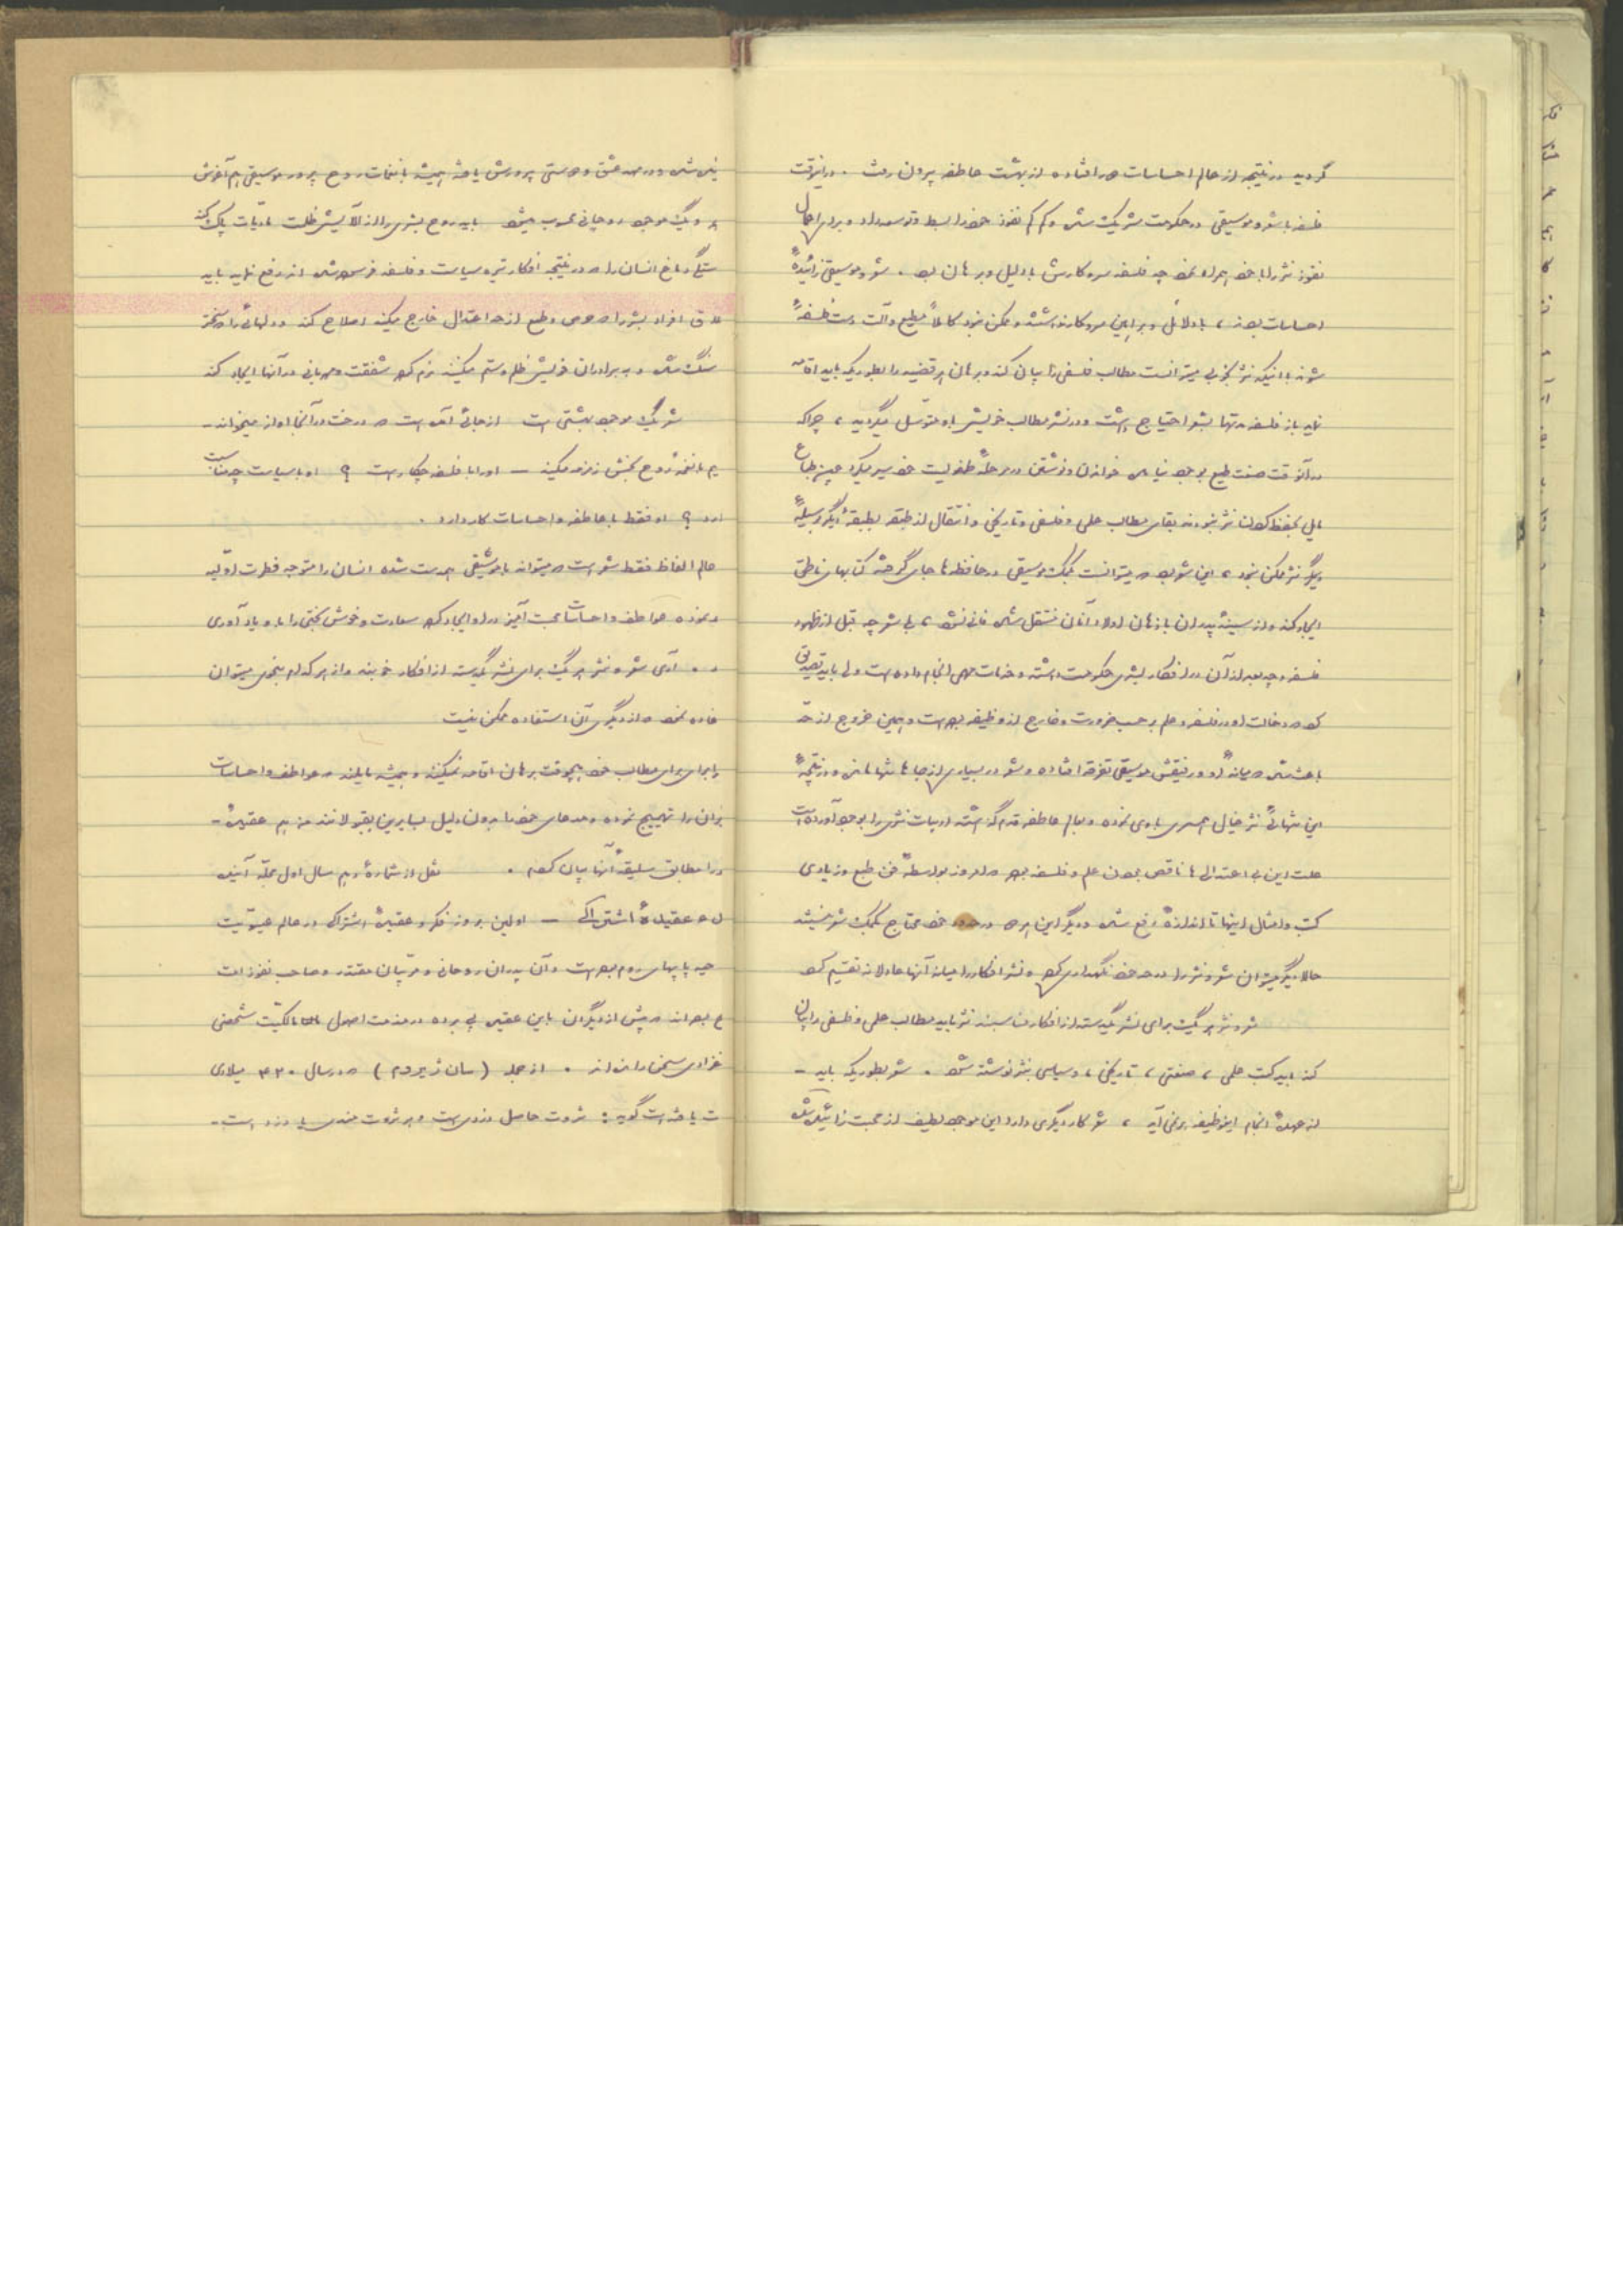 گردید در نتیجه از عالم احساسات دور افتاده از بهشت عاطفه بیرون رفت . در اینوقت
فلسفه با شعر و موسیقی در حکومت شریک شده و کم کم نفوذ خود را بسط و توسعه داد و برای اعمال
نفوذ نثر را با خود همراه نمود چه فلسفه سر و کارش با دلیل و برهان بود . شعر و موسیقی زائیدهٔ
احساسات بودند ، با دلائل و براهین سر و کار نداشتند و ممکن نبود کاملاً مطیع و آلت دست فلسفهٔ
شوند با اینکه نثر بخوبی میتوانست مطالب فلسفی را بیان کند و برهان هر قضیه را بطوریکه باید اقامه
نماید باز فلسفه مدتها بشعر احتیاج داشت و در نشر مطالب خویش باو متوسل میگردید ، چرا که
در آنوقت صنعت طبع بوجود نیامده خواندن و نوشتن در مرحلهٔ طفولیت خود سیر میکرد همین طباع
مایل بحفظ کردن نثر نبودند بقای مطالب علمی و فلسفی و تاریخی و انتقال از طبقه بطبقهٔ دیگر بوسیلهٔ
دیگر نثر ممکن نبود ، این شعر بود که میتوانست بکمک موسیقی در حافظه ها جای گرفته کتابهای ناطقی
ایجاد کند و از سینهٔ پدران باذهان اولاد آنان منتقل شده فانی نشود ، بلی شعر چه قبل از ظهور
فلسفه و چه بعد از آن در افکار بشری حکومت داشته و خدمات مهمی انجام داده است ولی باید تصدیق
کرد که دخالت او در فلسفه و علم بر حسب ضرورت و خارج از وظیفه بوده است و همین خروج از حد
باعث شده که میانهٔ او و رفیقش موسیقی تفرقه افتاده و شعر در بسیاری از جاها تنها مانده و در نتیجهٔ
این تنهائی نثر خیال همسری با وی نموده و بعالم عاطفه قدم گذاشته ادبیات نثری را بوجود آورده است
علت این بی اعتدالی ها ناقص بودن علم و فلسفه بود که امروز بواسطهٔ فن طبع و زیادی
کتب و امثال اینها تا اندازهٔ رفع شده و دیگر این امر در حدود خود محتاج بکمک شعر نیستند
حالا دیگر میتوان شعر و نثر را در حد خود نگهداری کرد و نشر افکار را میانه آنها عادلانه تقسیم کرد
شعر و نثر هر یک برای نشر یکدسته از افکار مناسبند نثر باید مطالب علمی و فلسفی را بیان
کند باید کتب علمی ، صنعتی ، تاریخی ، و سیاسی بنثر نوشته شود . شعر بطوریکه باید -
از عهدهٔ انجام اینوظیفه بر نمی آید ، شعر کار دیگری دارد این موجود لطیف از محبت زائیده شده
شده و در مهد عشق و دوستی پرورش یافته همیشه با نغمات روح پرور موسیقی هم آغوش
و یک موجود روحانی محسوب میشود باید روح بشری را از آلایش ظلمت مادیات پاک کند
دماغ انسان را که در نتیجه افکار تیره سیاست و فلسفه فرسوده شده رفع نماید باید
افراد بشر را که حرص و طمع از حد اعتدال خارج میکند اصلاح کند و دلهائی را که سخت تر
سنگ شده و به برادران خویش ظلم و ستم میکنند نرم کرده شفقت و مهربانی در آنها ایجاد کند
شعر یک موجود بهشتی است از جائی آمده است که درخت در آنجا آواز میخواند -
نغمهٔ روح بخش زمزمه میکند - او را با فلسفه چکار است ؟ او با سیاست چه مناسبت
دارد ؟ او فقط با عاطفه و احساسات کار دارد .
عالم الفاظ فقط شعر است که میتواند با موسیقی همدست شده انسان را متوجه فطرت اولیه
نموده عواطف و احساسات محبت آمیز در او ایجاد کرده سعادت و خوش بختی را باو یاد آوری
آری شعر و نثر هر یک برای نشر یکدسته از افکار خوبند و از هر کدام بنحوی میتوان
نمود که از دیگری آن استفاده ممکن نیست
برای مطالب خود هیچوقت برهان اقامه نمیکنند و همیشه مایلند که عواطف و احساسات
را تهییج نموده و مدعای خود را بدون دلیل بسایرین بقبولانند من هم عقیده -
را مطابق سلیقهٔ آنها بیان کردم . نقل از شمارهٔ دهم سال اول مجلهٔ آینده
عقیدهٔ اشتراکی - اولین بروز فکر و عقیدهٔ اشتراکی در عالم عیسویت
پاپهای روم بوده است و آن پدران روحانی و مربیان مقتدر و صاحب نفوذ امت
بوده اند که پیش از دیگران باین عقیده پی برده در مذمت اصول مالکیت شخصی
سخن رانده اند . از جمله ( سان ژیروم ) که در سال ۴۲۰ میلادی
یافته است گوید : ثروت حاصل دزدی است و هر ثروت مندی یا دزد است -